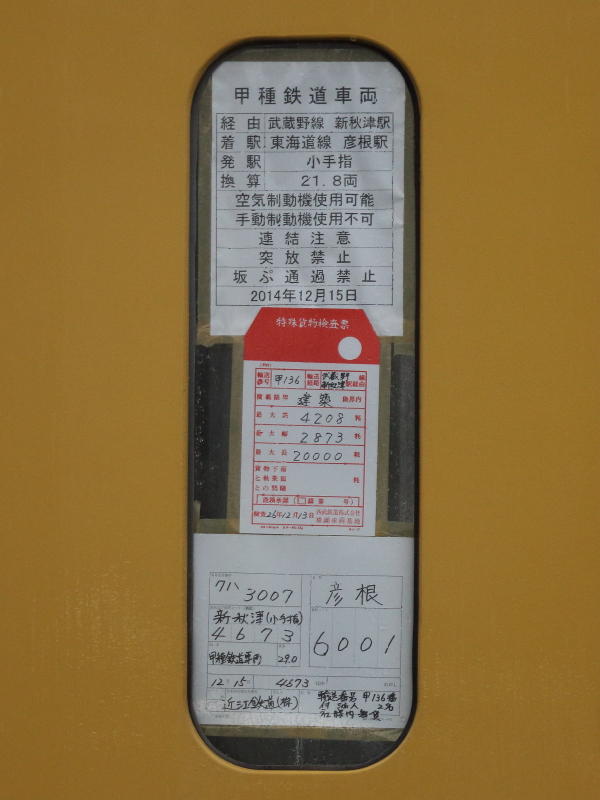 甲種鉄道車両
経由 武蔵野線 新秋津駅
着駅 東海道線 彦根駅
発駅 小手指
換算 21.8両
空気制動機使用可能
手動制動機使用不可
連結注意
突放禁止
坂ぷ通過禁止
2014年12月15日
特殊貨物検査票
輸送番号 甲136 輸送経路 武蔵野線 新秋津駅経由
積載限界 建築 限界内
最大高 4208 粍
最大幅 2873 粍
最大長 20000 粍
貨物下部
と軌条面 粍
との間隔
検査26年12月13日 西武鉄道株式会社
3007 彦根
新秋津(小手指)
4673 6001
甲種鉄道車両 29.0
12 15 4673
近江鉄道(株) 輸送番号 甲136番
2名